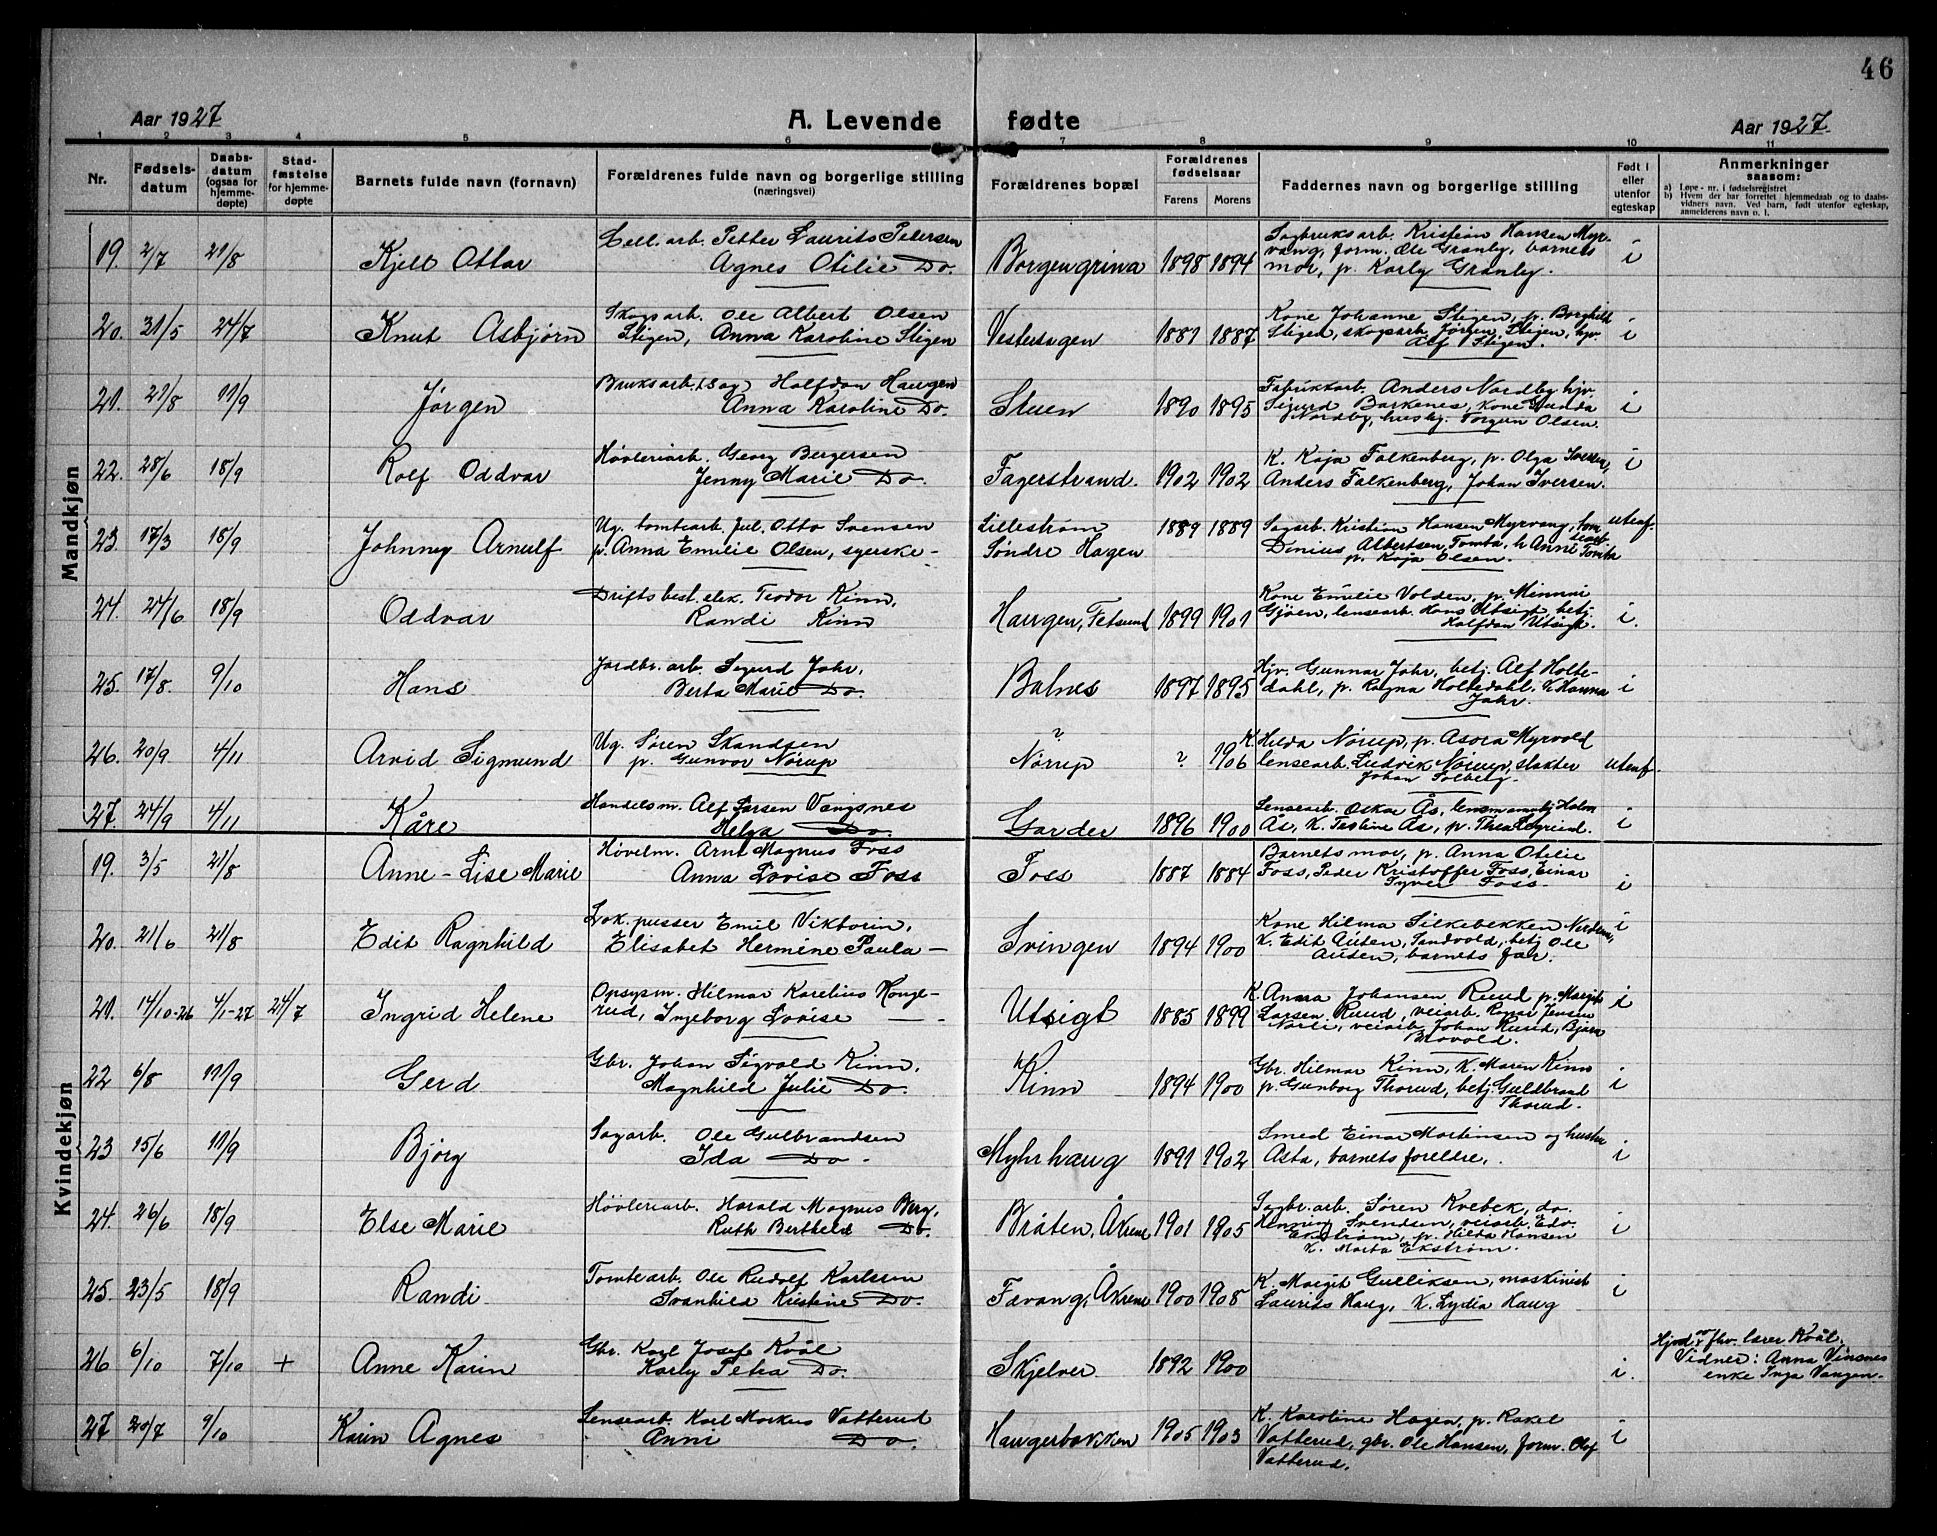 46
Aar 1927
A. Levende fødte
Aar 1927.
1 2 3 4 5 6 7 8 9 10 11
Nr.
Fødselsdatum
Daabsdatum (ogsaa for hjemmedøpte)
Stadfæstelse for hjemmedøpte
Barnets fulde navn (fornavn)
Forældrenes fulde navn og borgerlige stilling (næringsvei)
Forældrenes bopæl
Forældrenes fødselsaar
Farens Morens
Faddernes navn og borgerlige stilling
Født i eller utenfor egteskap
Anmerkninger saasom:
a) Løpe-nr. i fødselsregistret
b) Hvem der har forrettet hjemmedaab og to daabsvidners navn. Ved barn, født utenfor egteskap, anmelderens navn o. l.
Mandkjøn
19. 2/7 21/8 Kjell Ottar
Cell. arb. Petter Laurits Petersen
Agnes Otilie Do.
Borgengrina 1898 1894
Sagbruksarb. Kristian Hansen Myr-
vang, form. Ole Granly, barnets
mor, p. Karly Granly.
i
20. 31/5 24/7 Knut Asbjørn
Skogsarb. Ole Albert Olsen
Stigen, Anna Karoline Stigen
Vestersagen 1881 1887
Kone Johanne Stigen, p. Borghild
Stigen, skogsarb. Jørgen Stigen, hjv.
Alf Stigen.
i
21. 21/8 11/9 Jørgen
Bruksarb. (Sag) Halfdan Haugen
Anna Karoline Do.
Stuen 1890 1895
Fabrikkarb. Anders Nordby hjv.
Sigurd Barkenes, kone Gunda
Nordby, husby. Torgun Olsen.
i
22. 28/6 18/9 Rolf Oddvar
Høvleriarb. Georg Bergersen
Jenny Marie Do.
Fagerstrand. 1902 1902
K. Kaja Falkenberg, p. Olga Iversen,
Anders Falkenberg, Johan Iversen.
i
23. 17/3 18/9 Johnny Arnulf
Ug. tomtearb. Jul. Otto Svensen
p. Anna Emilie Olsen, syerske -
Lillestrøm
Søndre Hagen 1889 1889
Sagarb. Kristian Hansen Myrvang, tom
tearb.
Dinius Albertsen Tomta, h. Anne Tomta
p. Kaja Olsen.
utenf.
24. 24/6 18/9 Oddvar
Driftsbest. elek. Teodor Kinn,
Randi Kinn
Haugen, Fetsund 1899 1901
Kone Emilie Volden, p. Minmi
Gjøen, lensearb. Hans Utsigt, betj.
Halfdan Utsigt.
i.
25. 17/8. 9/10 Hans
Jordbr. arb. Sigurd Jahr,
Berta Marie Do.
Balnes 1897 1895
Hjv. Gunnar Jahr, betj. Alf Holte-
dahl, p. Ragna Holtedahl. K. Hanna
Jahr.
i
26. 20/9. 4/11 Arvid Sigmund
Ug. Søren Skandsen
p. Gunvor Nørup
?
Nørup ? 1906
K. Hilda Nørup, p. Asora Myrvold
lensearb. Ludvik Nørup, slakter
Johan Solberg.
utenf.
27. 24/9 4/11 Kåre
Handelsm. Alf Larsen Vangsnes
Helga Do.
Garder 1896 1900
Lensearb. Oskar Ås, lensemannbj Holm
Ås, K. Tastine Ås, p. Thea
i
Kvindekjøn
19. 3/5 21/8 Anne-Lise Marie
Høvelm. Arnt Magnus Foss
Anna Lovise Foss
Foss 1887 1884
Barnets mor, p. Anna Otilie
Foss, Peder Kristoffer Foss, Einar
Syver Foss.
i
20. 21/6 21/8 Edit Ragnhild
Lok. pusser Emil Viktorin,
Elisabet Hermine Paula -
Svingen 1894 1900
Kone Hilma Silkebekken
K. Edit Auten, Sandvold, betj. Ole
Auten, barnets far.
i
21. 14/10-26 4/1-27 24/7 Ingrid Helene
Opsysm. Hilmar Karelius Konge-
rud, Ingeborg Lovise -
Utsigt 1885 1899
K. Anna Johansen Ruud p. Margit
Larsen Ruud, veiarb. Ragnar Jensen
Norli, veiarb. Johan Ruud, Bjarne
Brovold.
i
22 6/8 11/9 Gerd
Gbr. Johan Sigvald Kinn,
Magnhild Julie Do.
Kinn 1894 1900
Gbr. Hilmar Kinn, K. Maren Kinn
p. Gunborg Thorud, betj. Guldbrand
Thorud.
i
23 15/6 11/9 Bjørg
Sagarb. Ole Gulbrandsen
Ida Do.
Myhrhaug 1891 1902
Smed Einar Martinsen og hustru
Asta, barnets forældre,.
i
24. 26/6 18/9 Else Marie
Høvleriarb. Harald Magnus Berg,
Ruth Berthela Do.
Bråten, Åkrene 1901 1905
Sagbr. arb. Søren Kvebek, do.
Henning Svendsen, veiarb. Edv.
Ekstrøm, p. Hilda Hansen
K. Marta Ekstrøm.
i
25. 23/5 18/9 Randi
Tomtearb. Ole Rudolf Karlsen
Svanhild Kristine Do.
Favang, Åkrene 1900 1908
K. Margit Gulliksen, maskinist
Laurits Haug, K. Lydia Haug
i
26 6/10 7/10 + Anne Karin
Gbr. Karl Josef Kvål
Karly Petra Do.
Skjelver. 1892 1900
i.
Hjmd. av fhv. lærer Kvål.
Vidner: Anna Vinsnes
enke Inga Vangen.
27 20/7 9/10 Karin Agnes
Lensearb. Karl Markus Vatterud
Anni Do
Haugerbakken 1905 1903
K. Karoline Hagen, p. Rakel
Vatterud, gbr. Ole Hansen, form. Olaf
Vatterud.
i